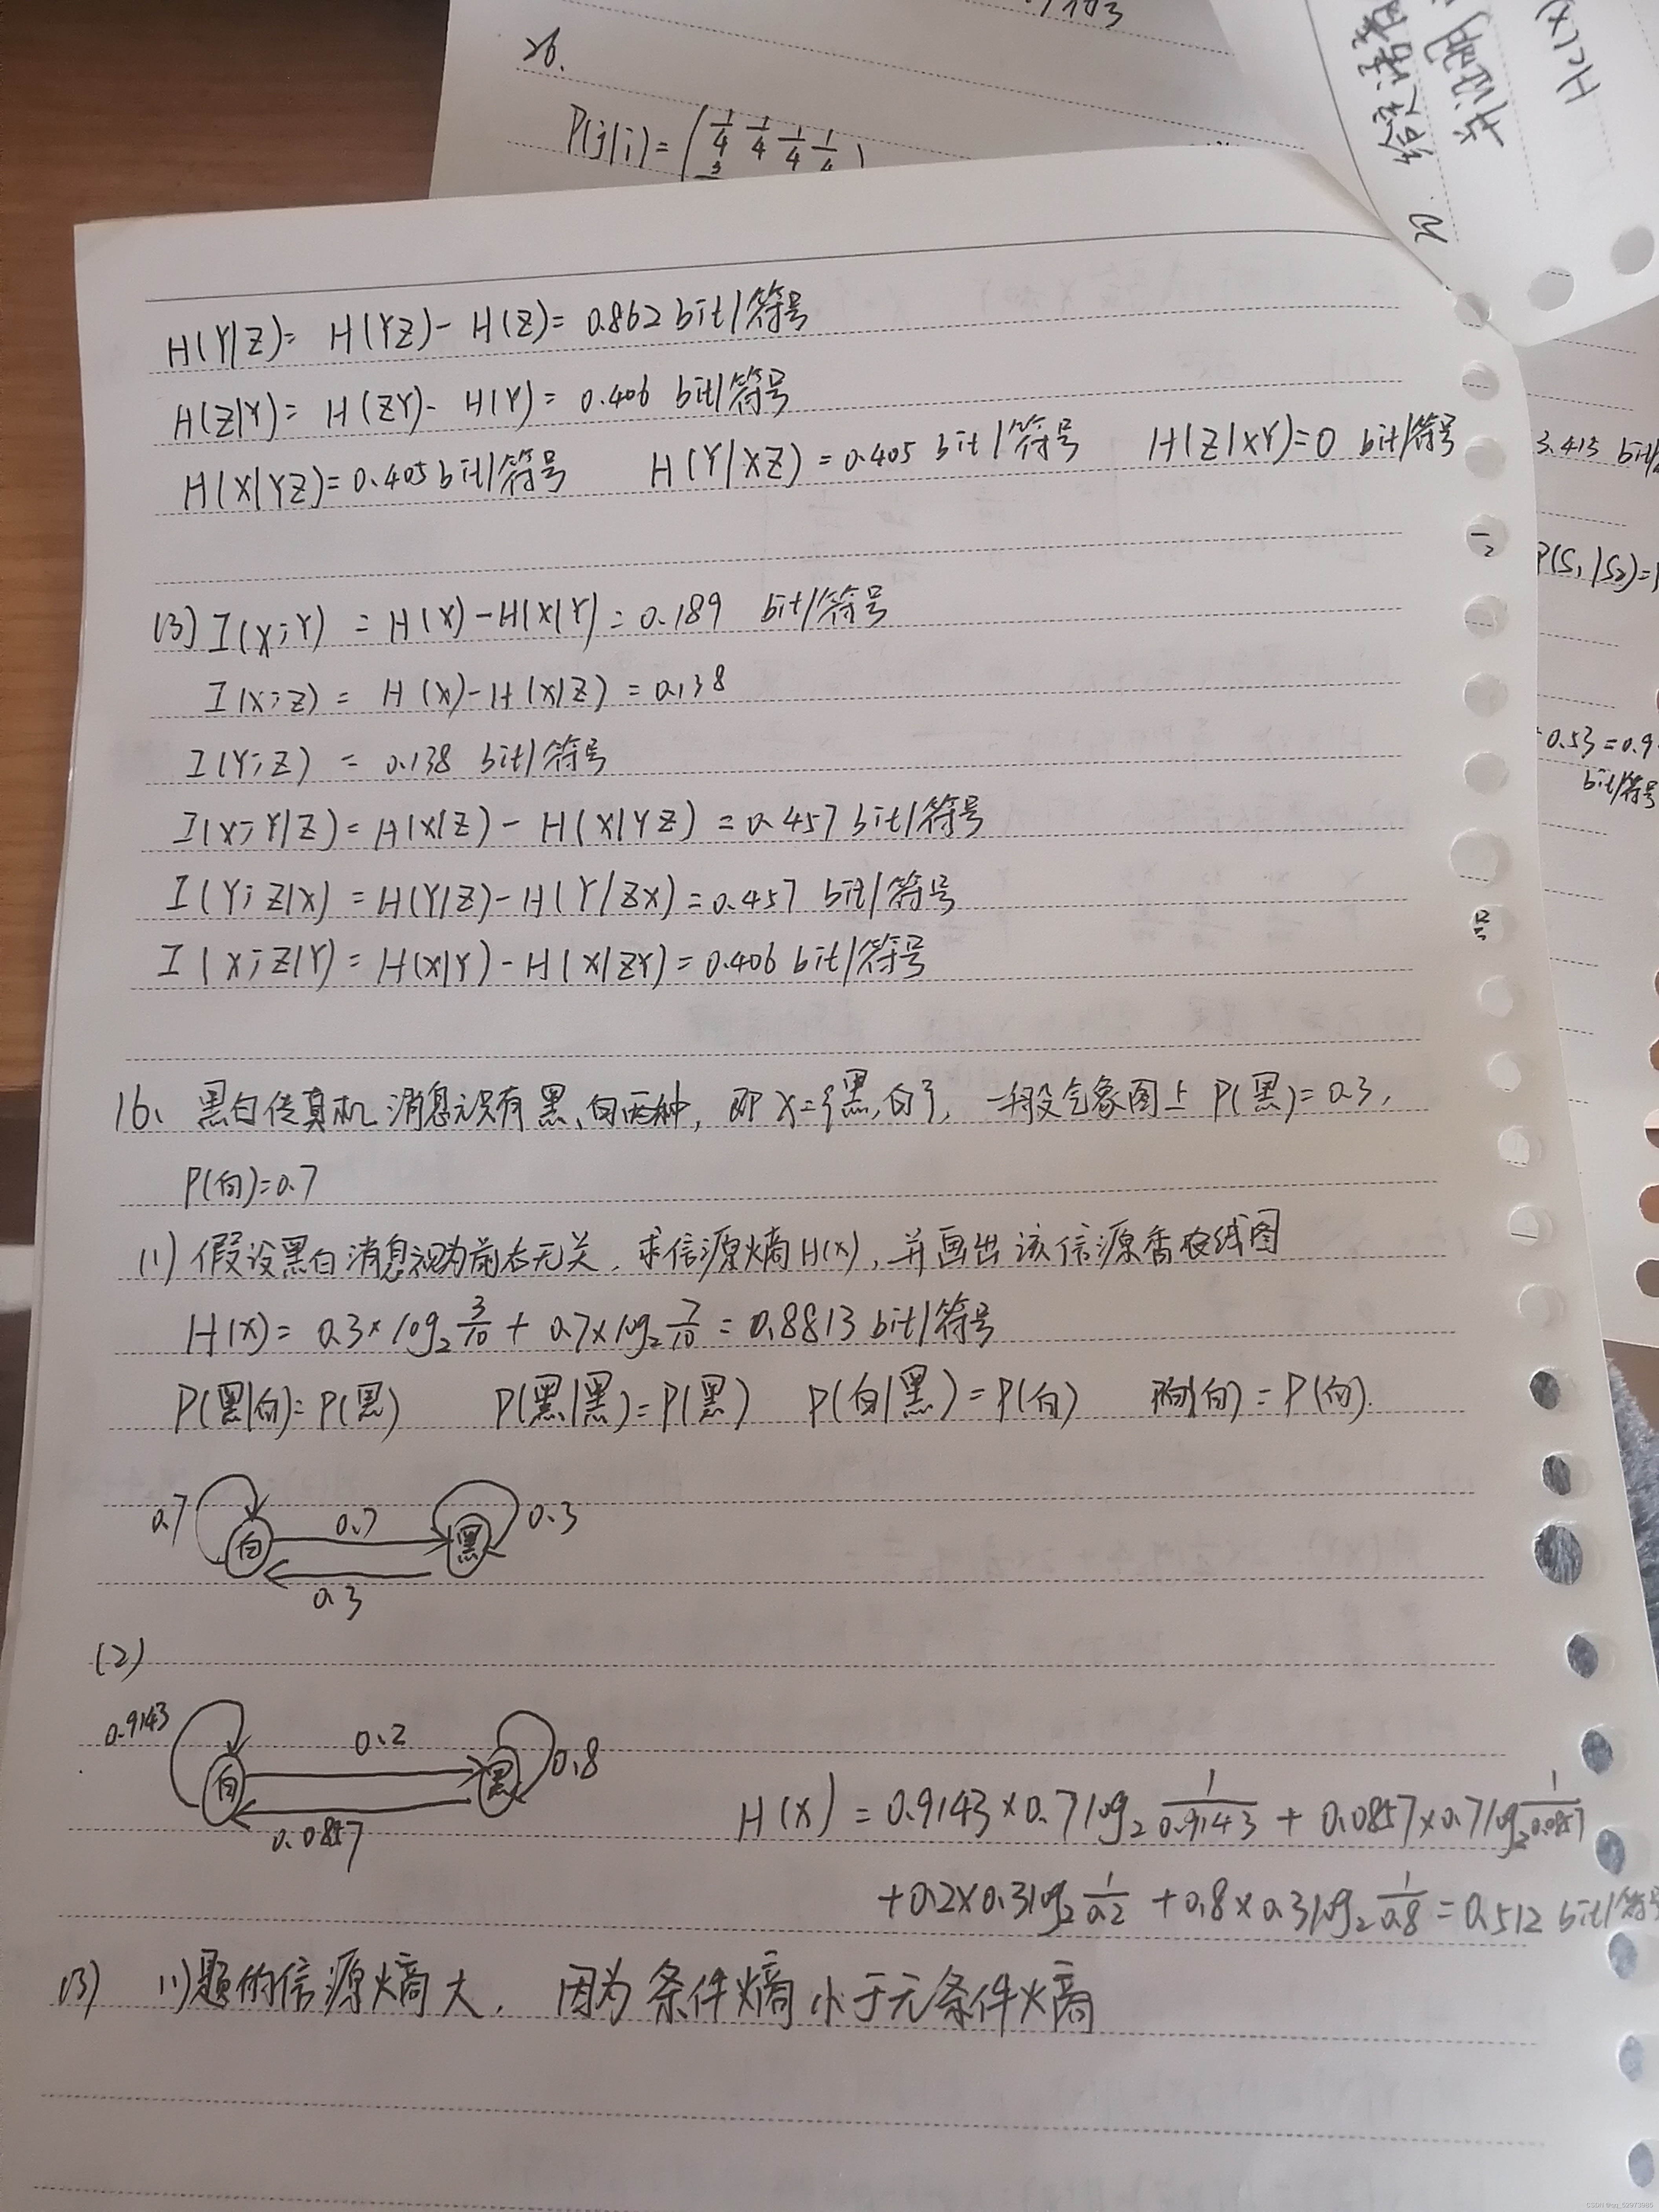 26.
P(j|i)=(1/4 1/4 1/4 1/4)
H(X
H(Y|Z)= H(YZ)- H(Z)= 0.862 bit/符号
H(Z|Y)= H(ZY)- H(Y)= 0.406 bit/符号
H(X|YZ)=0.405 bit/符号 H(Y|XZ)=0.405 bit/符号 H(Z|XY)=0 bit/符号
3.415 bit/
P(S₁|S₂)=
0.53=0.9
bit/符号
(3) I(X;Y) = H(X)-H(X|Y)=0.189 bit/符号
I(X;Z) = H(X)-H(X|Z)=0.138
I(Y;Z) = 0.138 bit/符号
I(X;Y|Z)=H(X|Z)- H(X|YZ)=0.457 bit/符号
I(Y;Z|X)=H(Y|Z)-H(Y|ZX)=0.457 bit/符号
I(X;Z|Y)=H(X|Y)-H(X|ZY)=0.406 bit/符号
16、黑白传真机消息元只有黑、白两种, 即X={黑,白}, 一般气象图上 P(黑)=0.3,
P(白)=0.7
(1) 假设黑白消息视为前后无关, 求信源熵H(X), 并画出该信源香农线图
H(X)= 0.3×log₂3/10 + 0.7×log₂7/10 = 0.8813 bit/符号
P(黑|白)=P(黑) P(黑|黑)=P(黑) P(白|黑)=P(白) P(白|白)=P(白).
0.7 白 0.7 黑 0.3
0.3
(2)
0.9143 白 0.2 黑 0.8
0.0857
H(X)=0.9143×0.7log₂1/0.9143 + 0.0857×0.7log₂1/0.0857
+0.2×0.3log₂1/0.2 +0.8×0.3log₂1/0.8=0.512 bit/符号
(3) (1)题的信源熵大, 因为条件熵小于无条件熵